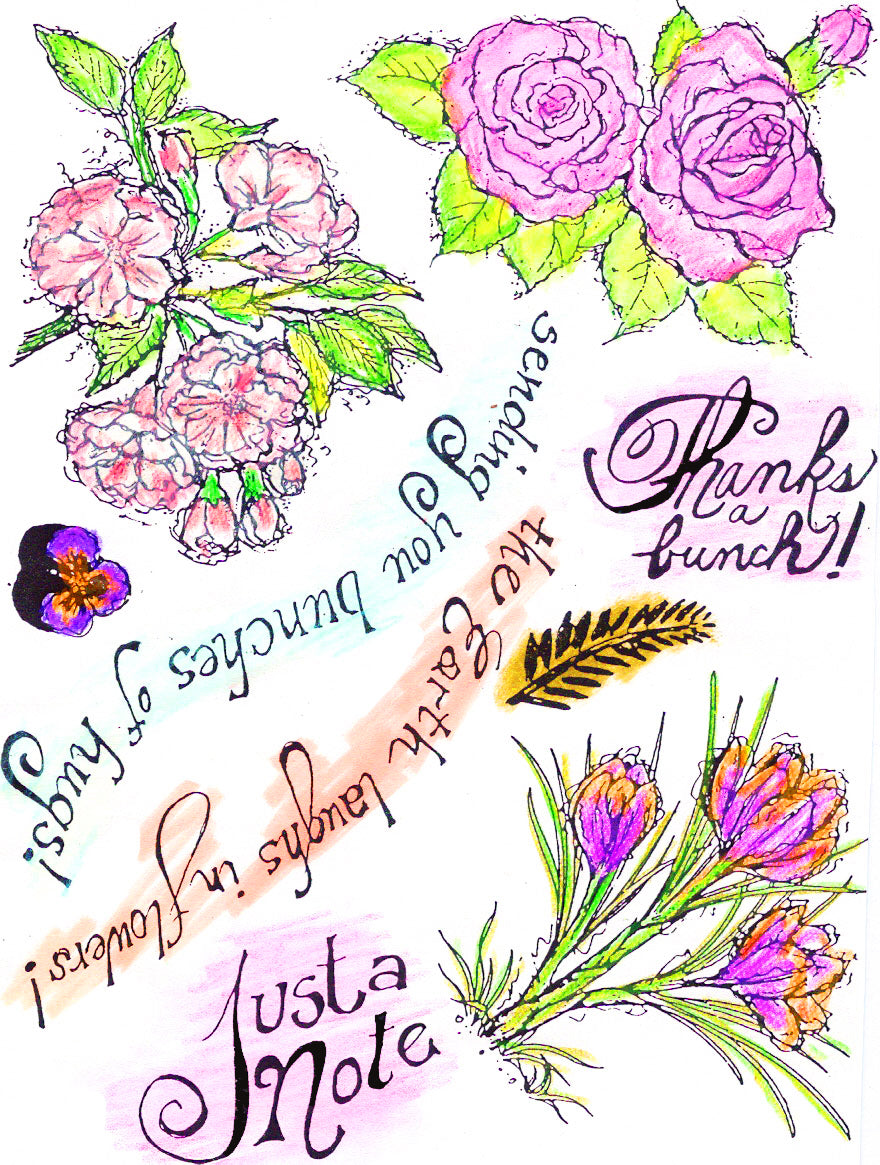 sending you bunches of hugs!
Thanks
a
bunch!
the Earth laughs in flowers!
Just a
Note